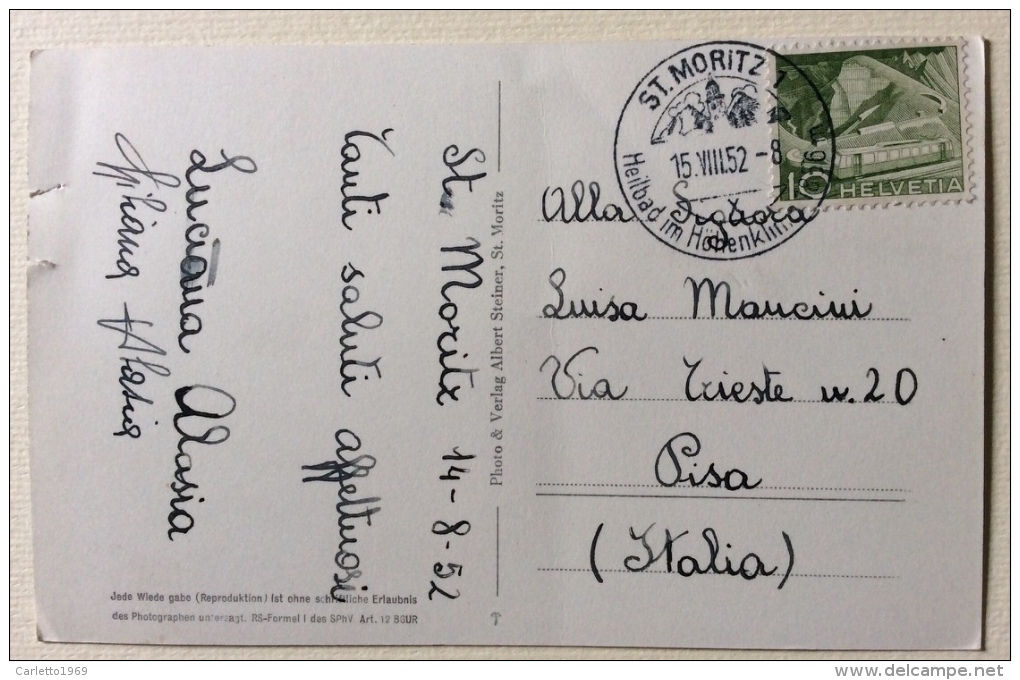 St. Moritz 14-8-52
Tanti saluti affettuosi
Luciana Alasia
Alasia
Photo & Verlag Albert Steiner, St. Moritz
Jede Wiedegabe (Reproduktion) ist ohne schriftliche Erlaubnis
des Photographen untersagt. RS-Formel I des SPhV Art. 12 BGUR
ST. MORITZ 1
15.VIII.52 -8
Heilbad im Höhenklima
10 HELVETIA
Alla Signora
Luisa Mancini
Via Trieste n. 20
Pisa
(Italia)
Carletto1969
delcampe.net